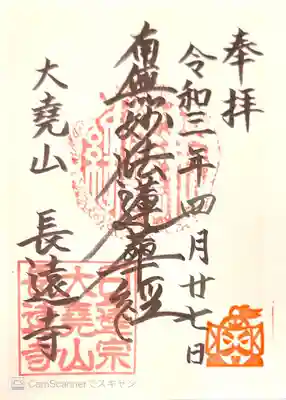 奉拝
令和三年四月廿七日
南無妙法蓮華経
大堯山
長遠寺
日蓮宗
大堯山
長遠寺
CamScannerでスキャン